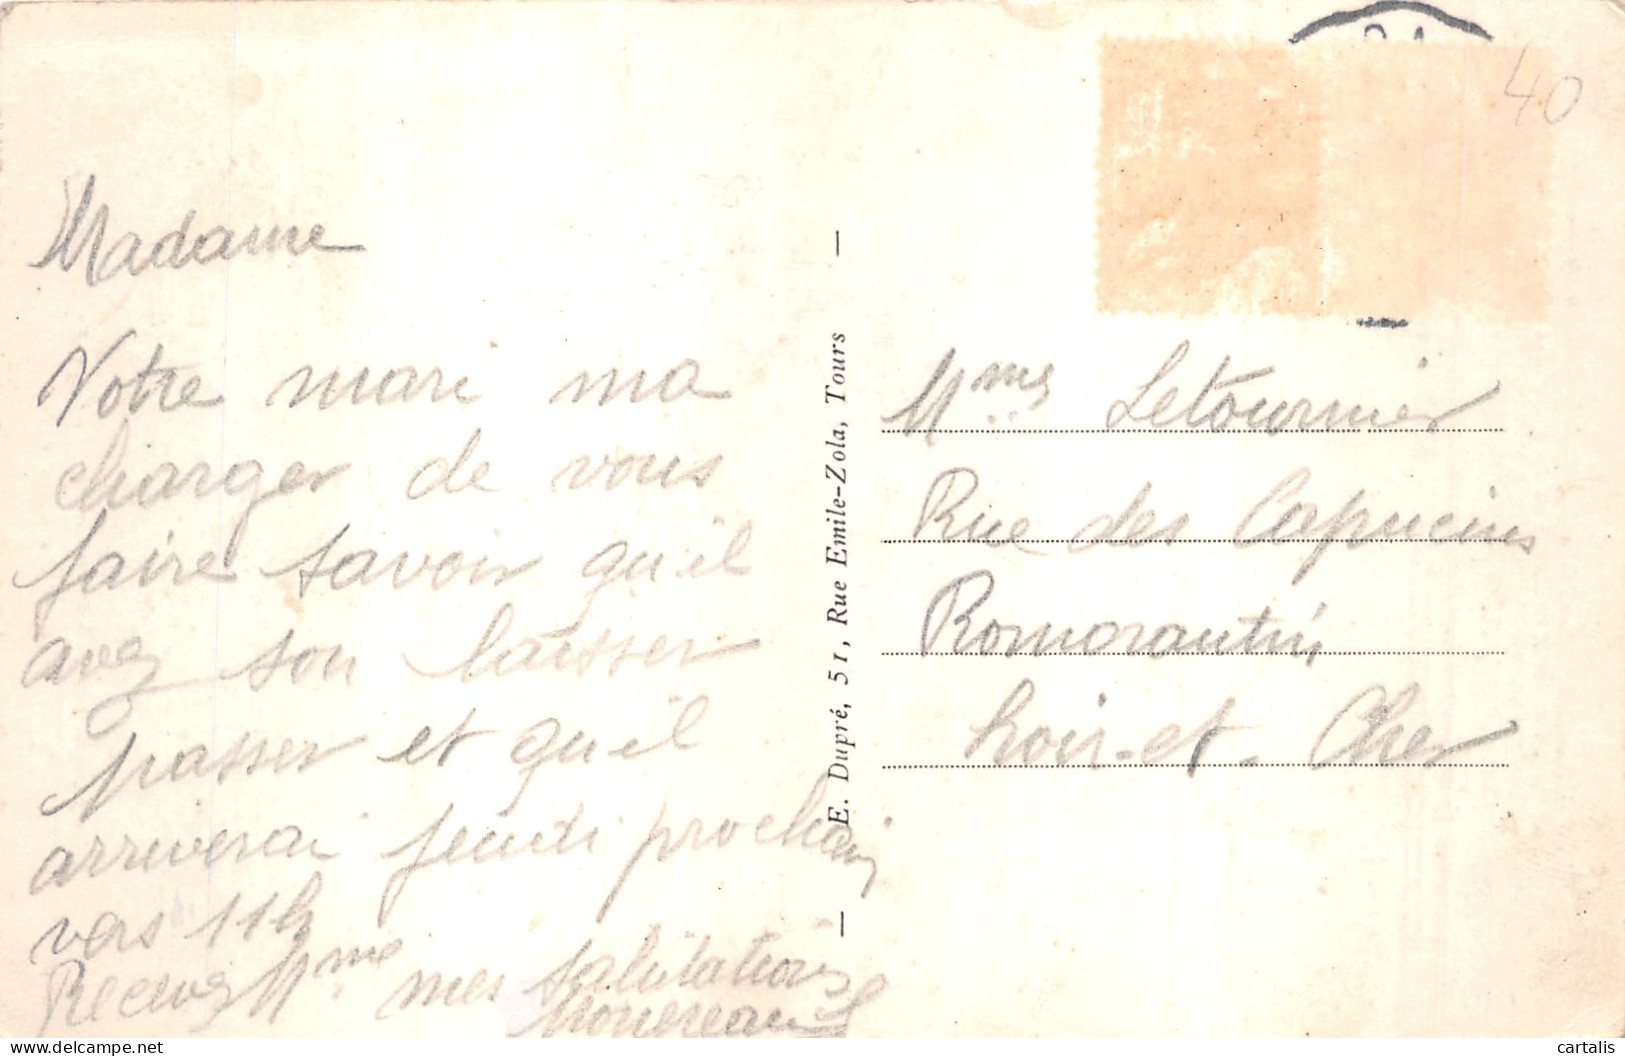 40
Madame
Votre mari ma
charger de vous
faire savoir qu'il
avez son laisser
passer et qu'il
arriverai jeudi prochain
vers 11h
Recevez Mme mes salutations
E. Dupré, 51, Rue Emile-Zola, Tours
Mmes Letournier
Rue des Capucins
Romorantin
Loir-et-Cher
cartalis
www.delcampe.net